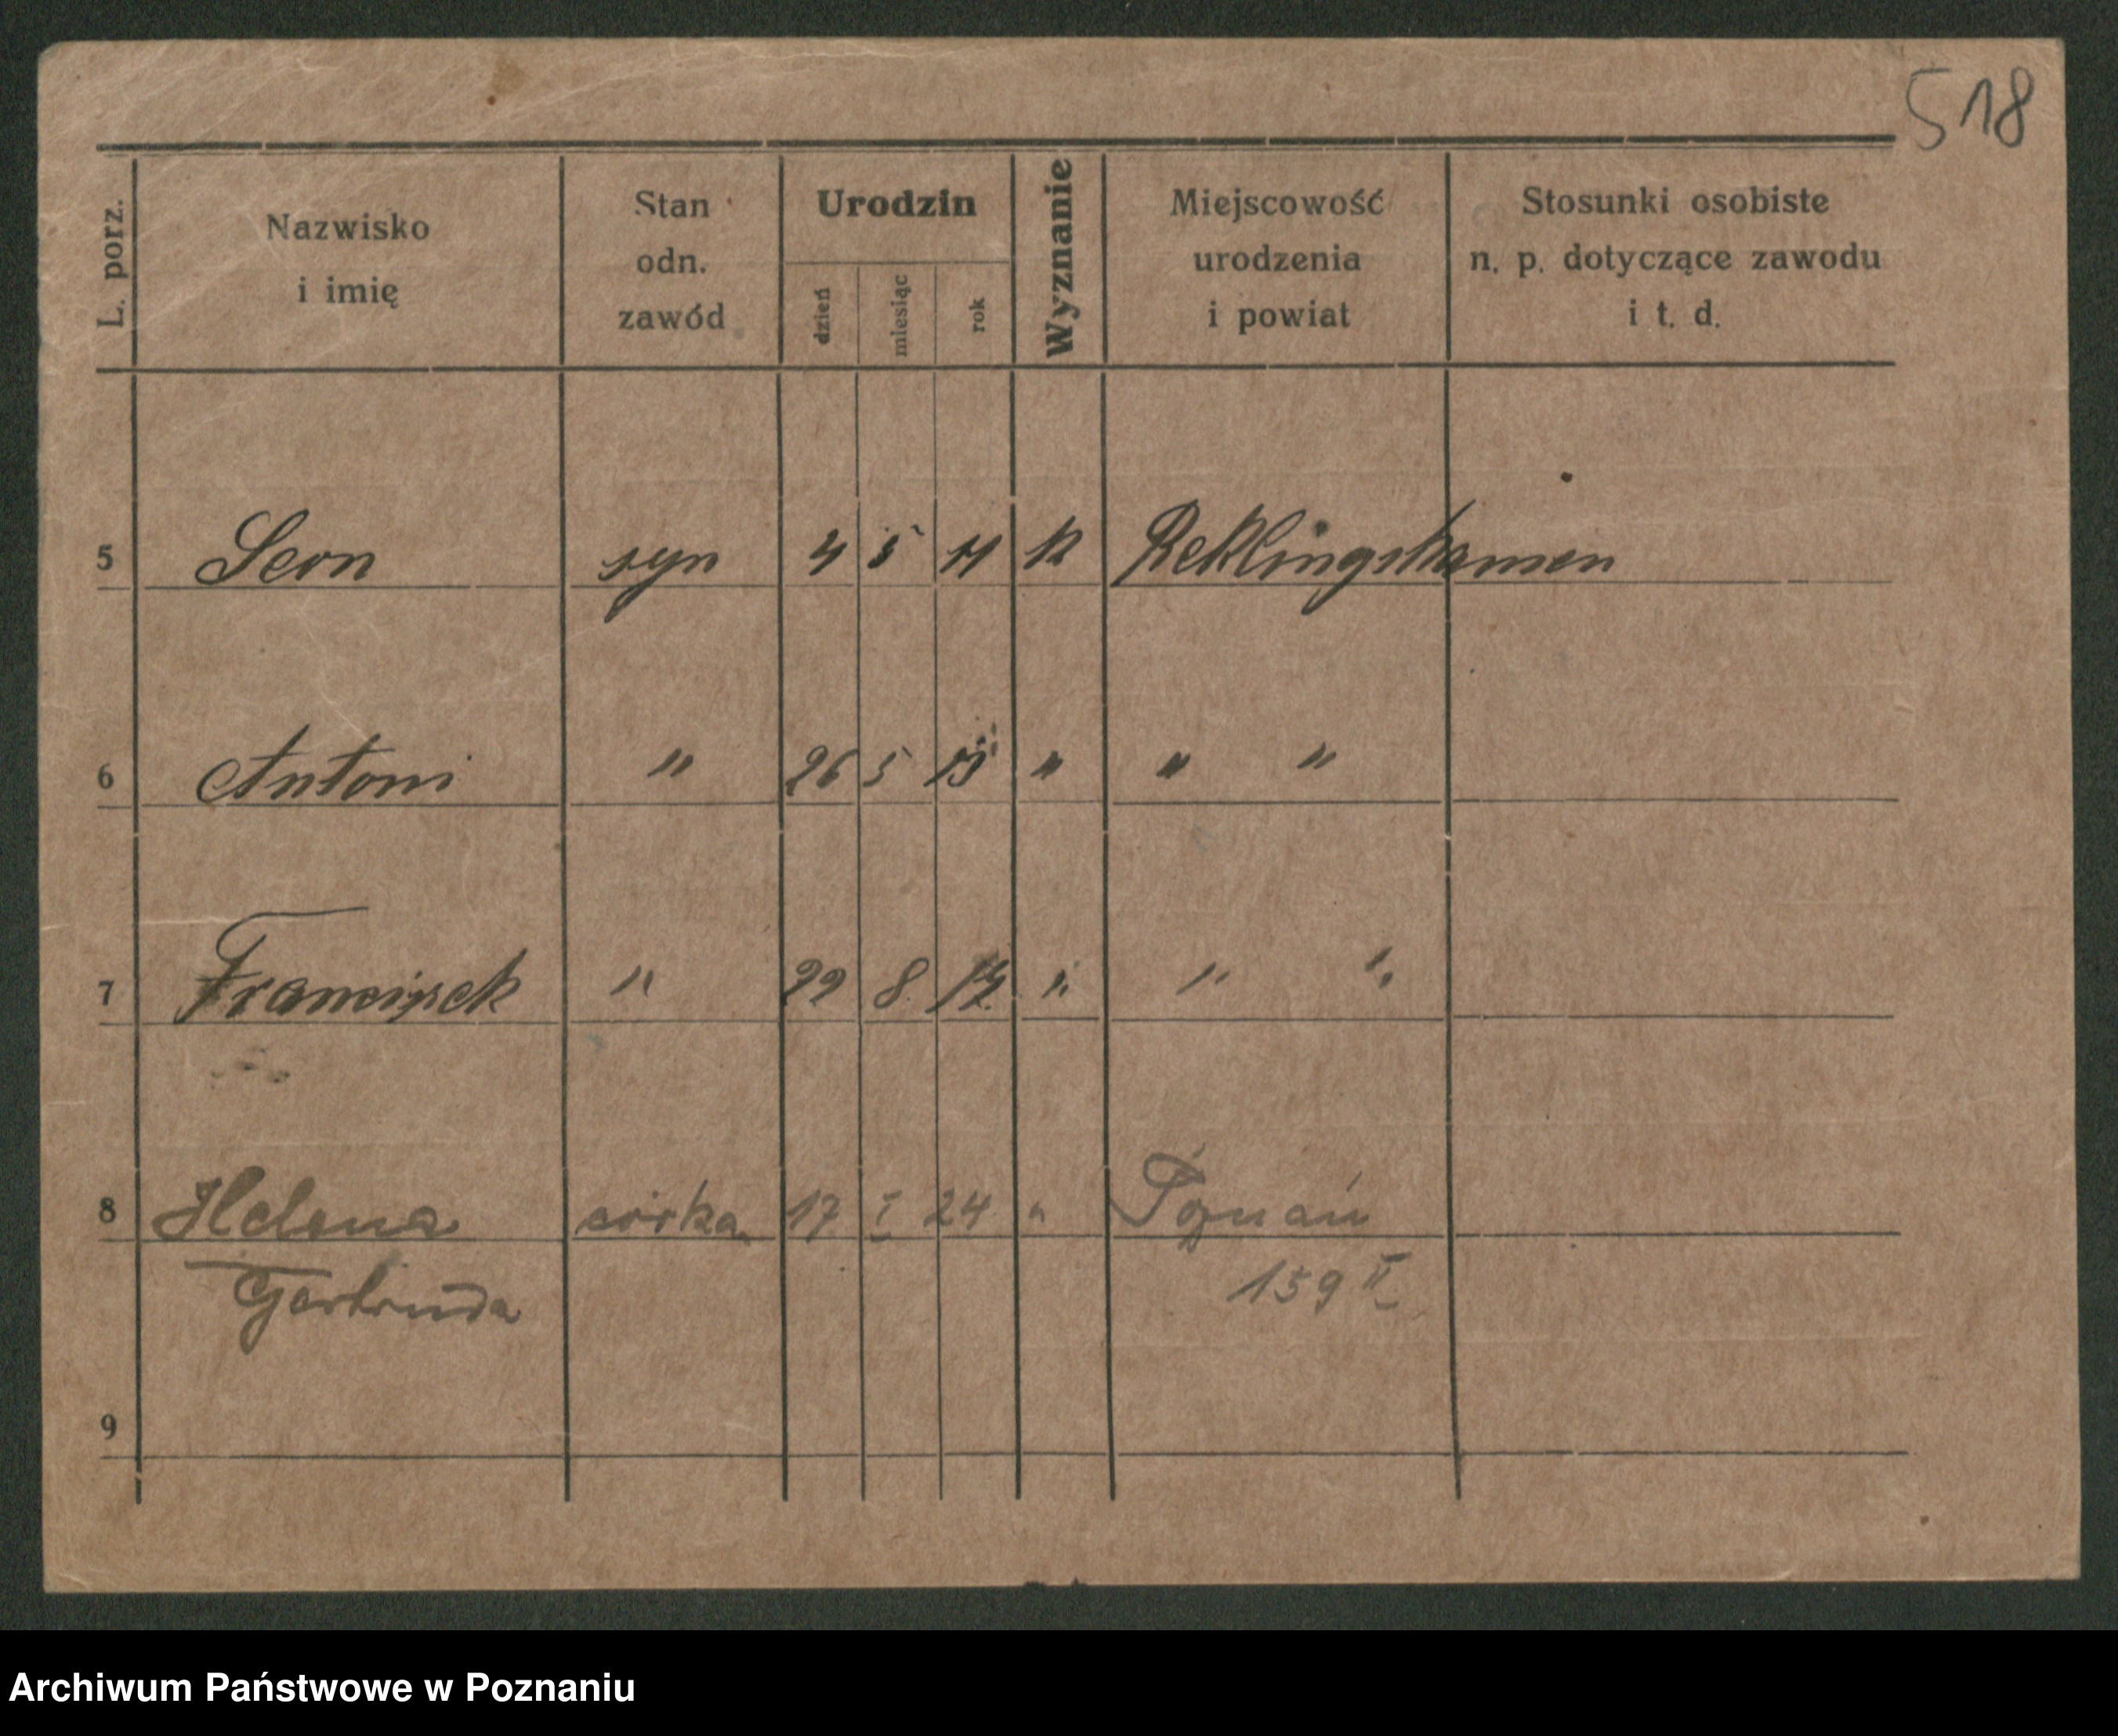 518
L. porz.
Nazwisko
i imię
Stan
odn.
zawód
Urodzin
dzień
miesiąc
rok
Wyznanie
Miejscowość
urodzenia
i powiat
Stosunki osobiste
n. p. dotyczące zawodu
i t. d.
5 Leon syn 4 5 11 k Reklingshausen
6 Antoni " 26 5 " " "
7 Franciszek " 29 8 " " "
8 Helena córka 17 I 24 " Poznań
Gertruda 159 II
9
Archiwum Państwowe w Poznaniu